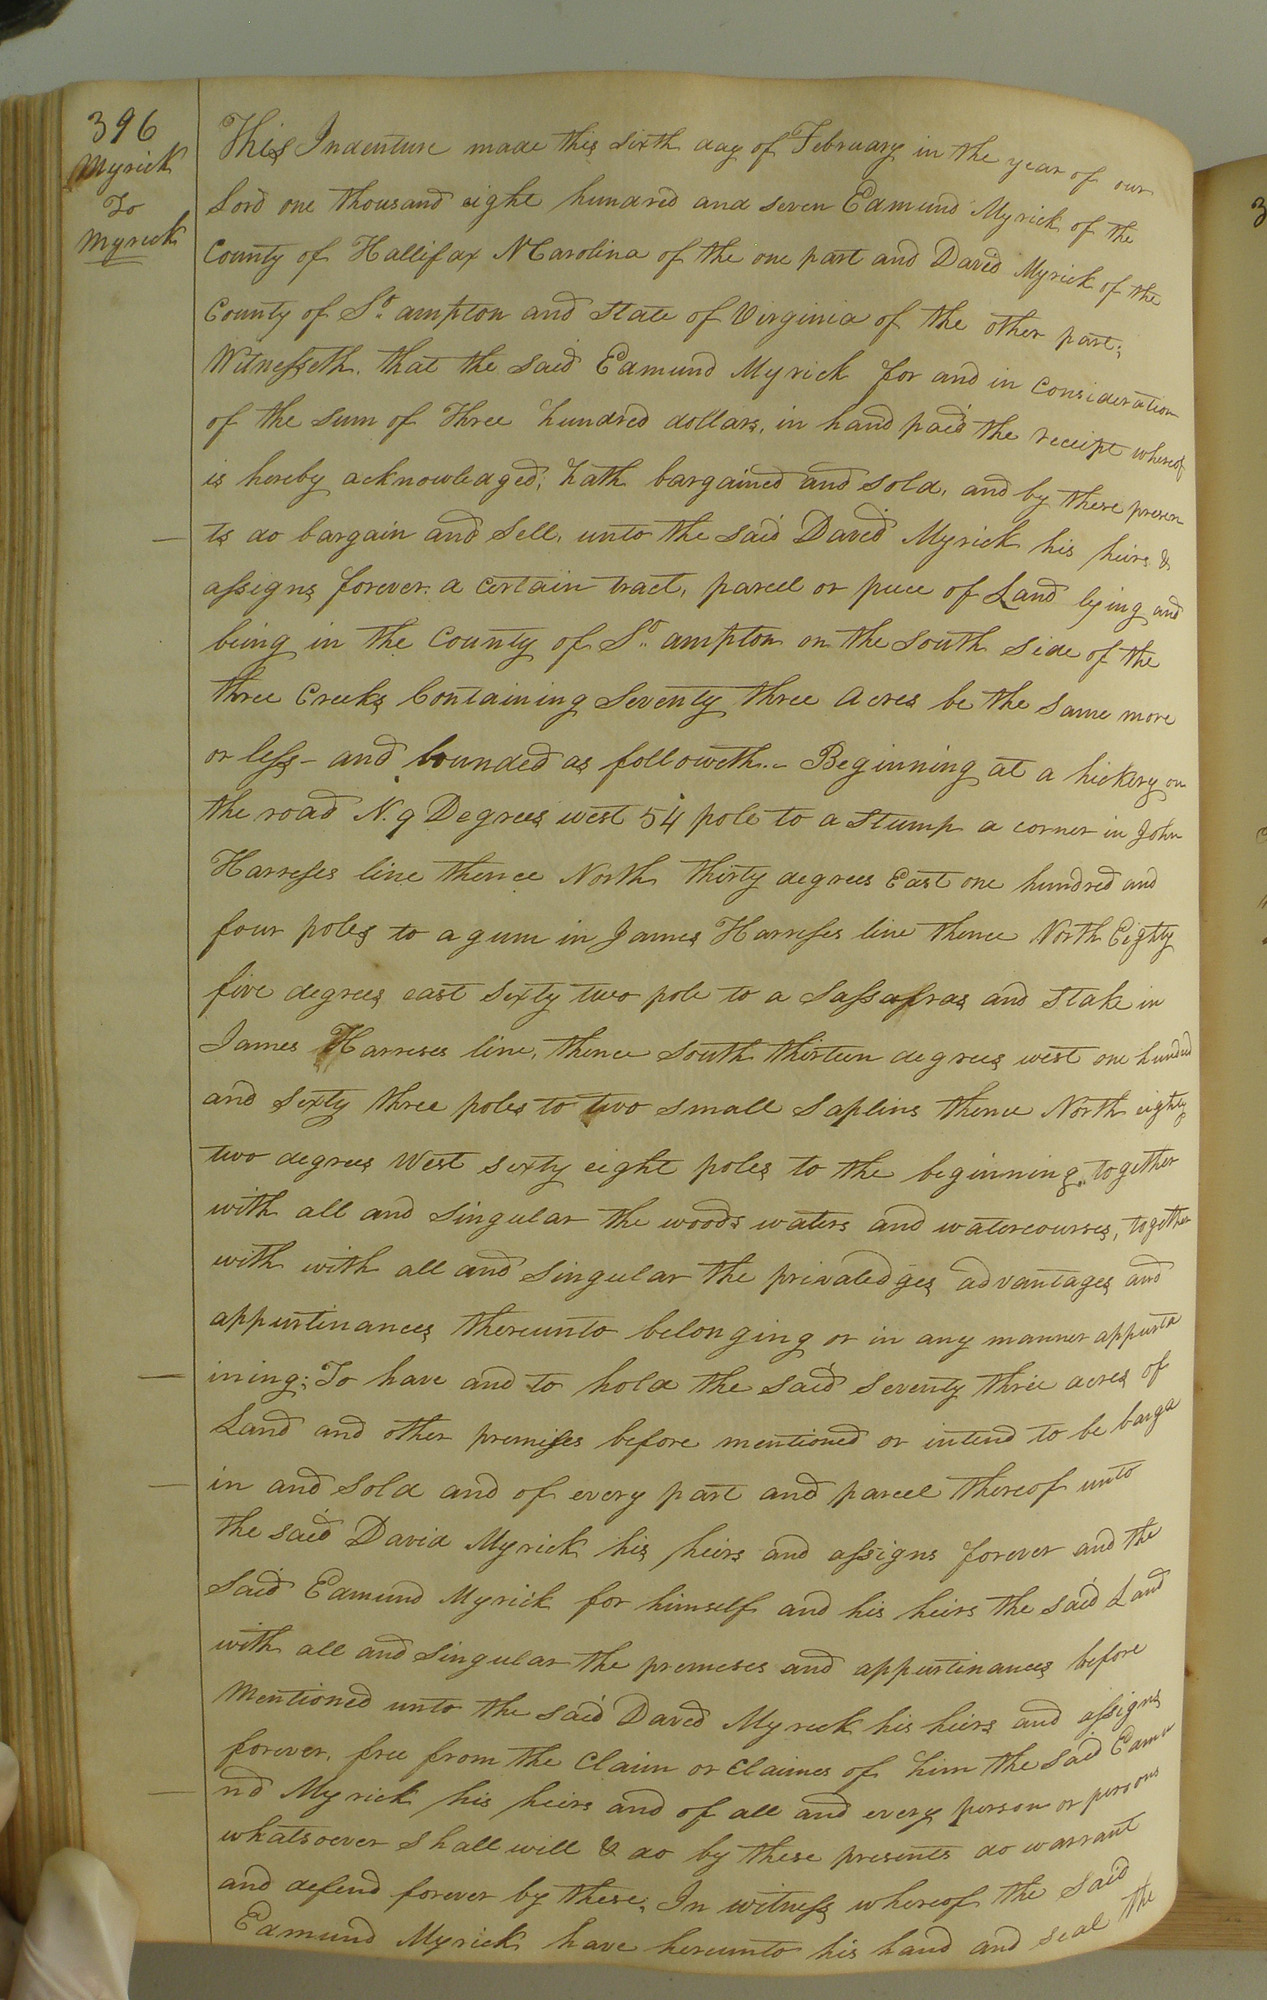 396
Myrick
To
Myrick
This Indenture made this sixth day of February in the year of our
Lord one thousand eight hundred and seven Edmund Myrick of the
County of Hallifax NCarolina of the one part and David Myrick of the
County of So. ampton and State of Virginia of the other part;
Witnesseth. that the said Edmund Myrick for and in consideration
of the sum of Three hundred dollars, in hand paid the receipt whereof
is hereby acknowledged; hath bargained and sold, and by these presen
ts do bargain and sell, unto the said David Myrick his heirs &
assigns forever. a certain tract, parcel or piece of Land lying and
being in the County of So. ampton on the south side of the
three Creeks Containing Seventy three Acres be the same more
or less - and bounded as followeth.- Beginning at a hickery on
the road N. 9 Degrees west 54 pole to a Stump a corner in John
Harresses line thence North thirty degrees East one hundred and
four poles to a gum in James Harresses line thence North Eighty
five degrees east sixty two pole to a Sassafras and Stake in
James Harreses line, thence South thirteen degrees west one hundred
and sixty three poles to two small Saplins thence North eighty
two degrees West sixty eight poles to the beginning, together
with all and Singular the woods waters and watercourses, together
with with all and Singular the privaledges advantages and
appurtinances thereunto belonging or in any manner appurta
ining; To have and to hold the said Seventy three acres of
Land and other premises before mentioned or intend to be barga
in and sold and of every part and parcel thereof unto
the said David Myrick his heirs and assigns forever and the
said Edmund Myrick for himself and his heirs the said Land
with all and Singular the premeses and appurtinances before
Mentioned unto the said David Myrick his heirs and assigns
forever, free from the Claim or Claimes of him the said Edmu
nd Myrick his heirs and of all and every person or persons
whatsoever shall will & do by these presents do warrant
and defend forever by these. In witness whereof the said
Edmund Myrick have hereunto his hand and seal the
3